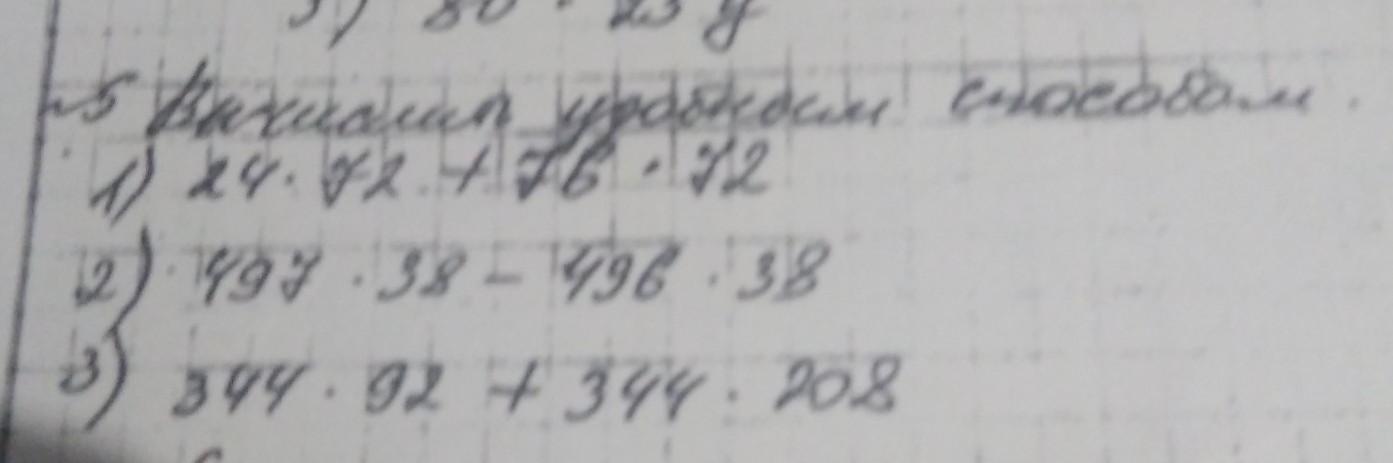 3) 80 · 23 y
№5 Вычислить удобным способом.
1) 24 · 72 + 76 · 72
2) 497 · 38 - 496 · 38
3) 344 · 92 + 344 · 208